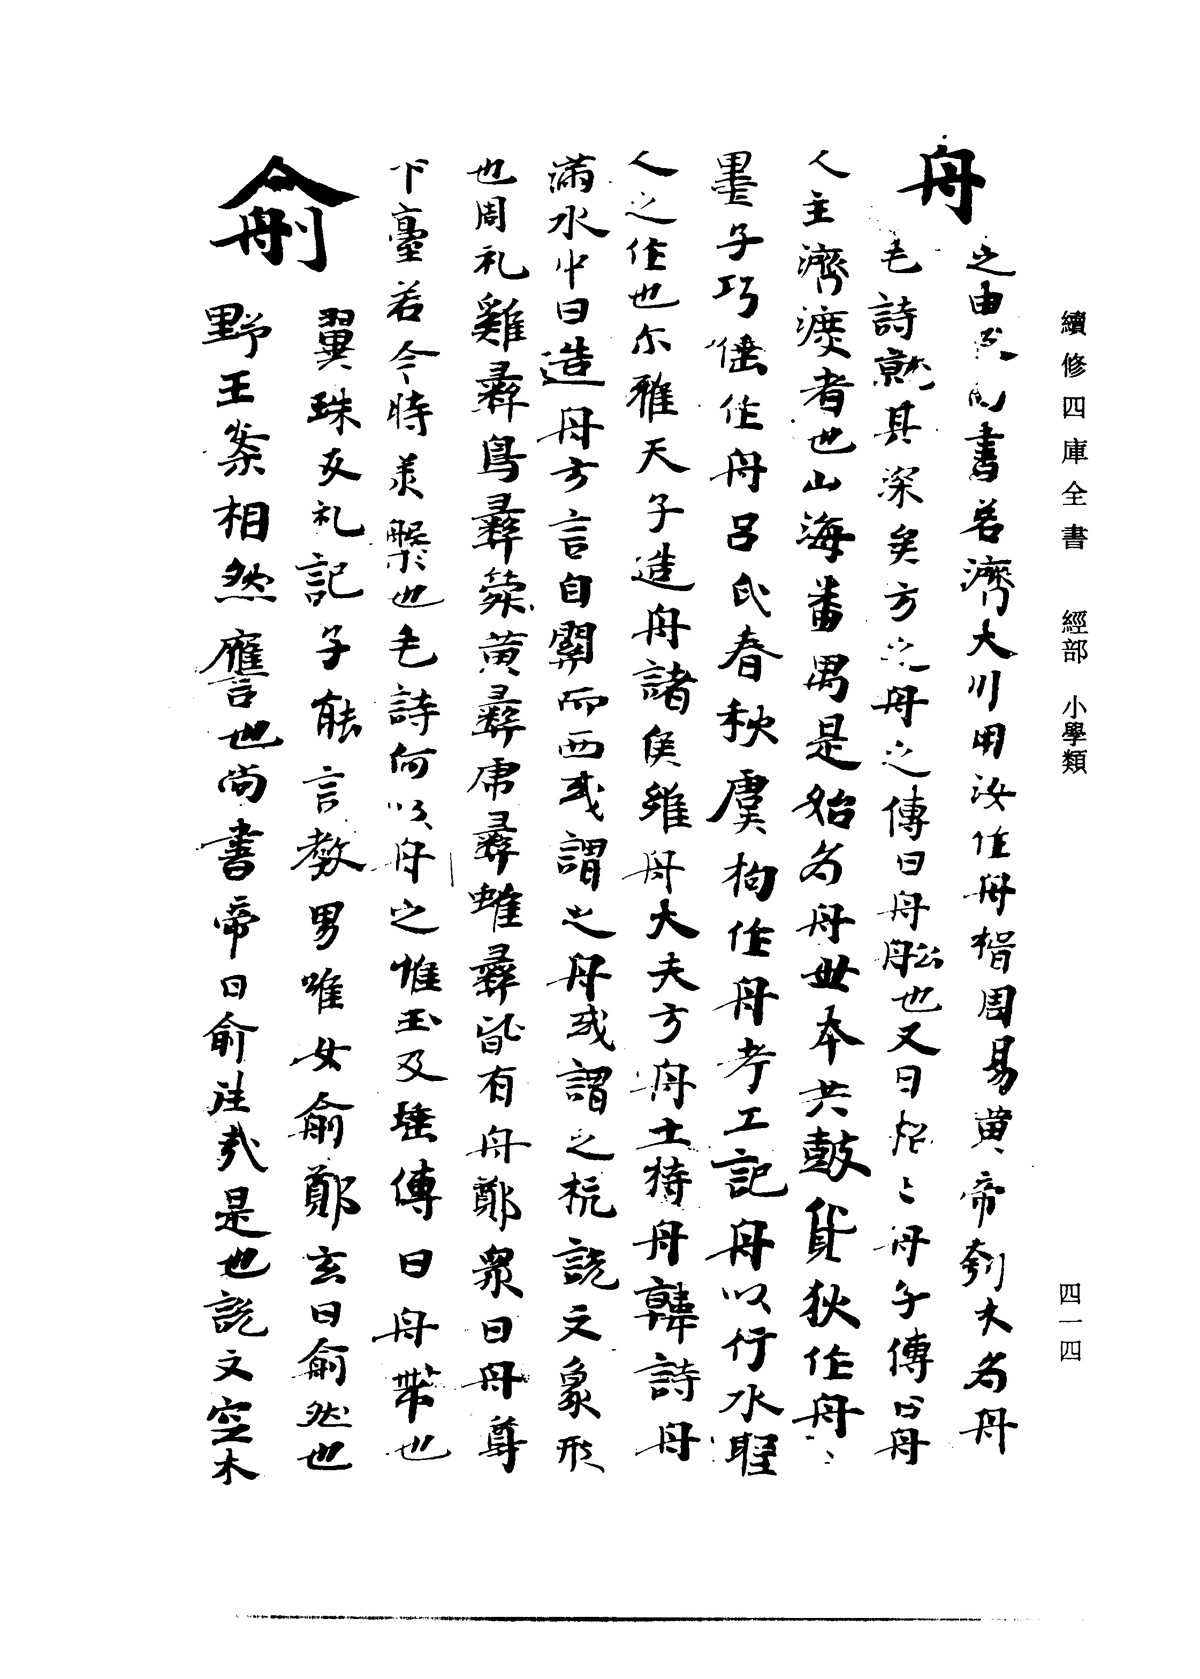 續修四庫全書 經部 小學類
四一四
舟
之由反尚書若濟大川用汝作舟楫周易黄帝刳木爲舟
毛詩就其深矣方之舟之傳曰舟舩也又曰招〻舟子傳曰舟
人主濟渡者也山海番禺是始爲舟世本共鼓貨狄作舟〻
墨子巧倕作舟吕氏春秋虞姁作舟考工記舟以行水聖
人之作也尔雅天子造舟諸侯維舟大夫方舟士特舟韓詩舟
滿水中曰造舟方言自關而西或謂之舟或謂之杭說文象形
也周礼雞彝鳥彝斝黄彝虎彝蜼彝皆有舟鄭衆曰舟尊
下臺若今時承槃也毛詩何以舟之惟玉及瑶傳曰舟帶也
俞
翼珠反礼記子能言教男唯女俞鄭玄曰俞然也
野王案相然譍也尚書帝曰俞往哉是也說文空木